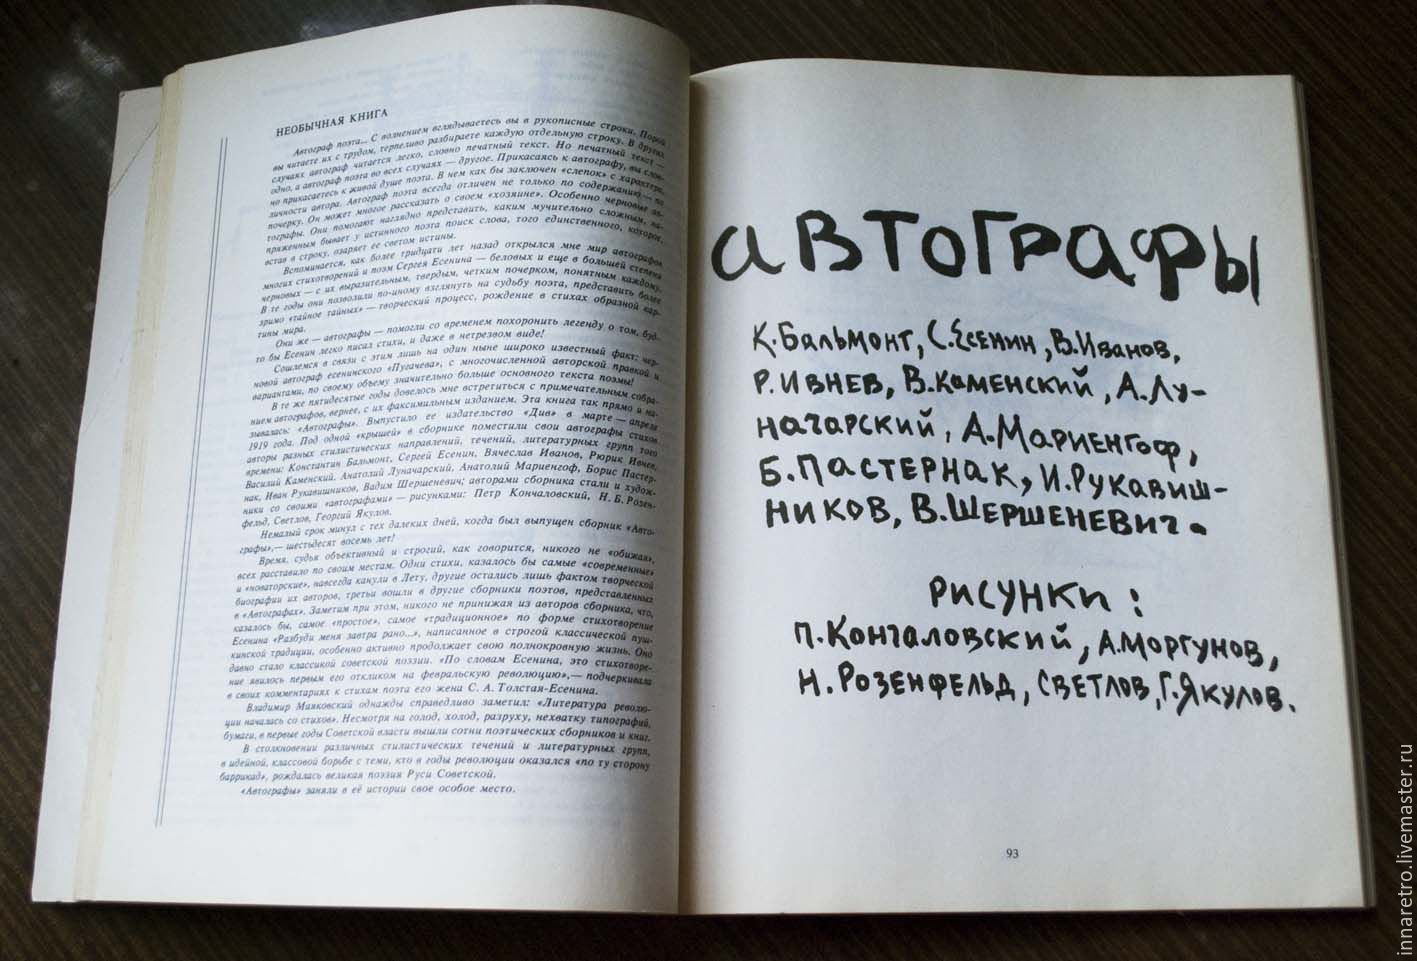 НЕОБЫЧНАЯ КНИГА
Автограф поэта... С волнением вглядываетесь вы в рукописные строки. Порой
вы читаете их с трудом, терпеливо разбираете каждую отдельную строку. В других
случаях автограф читается легко, словно печатный текст. Но печатный текст —
одно, а автограф поэта во всех случаях — другое. Прикасаясь к автографу, вы слов-
но прикасаетесь к живой душе поэта. В нем как бы заключен «слепок» с характера,
личности автора. Автограф поэта всегда отличен не только по содержанию — по
почерку. Он может многое рассказать о своем «хозяине». Особенно черновые ав-
тографы. Они помогают наглядно представить, каким мучительно сложным, на-
пряженным бывает у истинного поэта поиск слова, того единственного, которое,
встав в строку, озаряет ее светом истины.
Вспоминается, как более тридцати лет назад открылся мне мир автографов
многих стихотворений и поэм Сергея Есенина — беловых и еще в большей степени
черновых — с их выразительным, твердым, четким почерком, понятным каждому.
В те годы они позволили по-иному взглянуть на судьбу поэта, представить более
зримо «тайное тайных» — творческий процесс, рождение в стихах образной кар-
тины мира.
Они же — автографы — помогли со временем похоронить легенду о том, буд-
то бы Есенин легко писал стихи, и даже в нетрезвом виде!
Сошлемся в связи с этим лишь на один ныне широко известный факт: чер-
новой автограф есенинского «Пугачева», с многочисленной авторской правкой и
вариантами, по своему объему значительно больше основного текста поэмы!
В те же пятидесятые годы довелось мне встретиться с примечательным собра-
нием автографов, вернее, с их факсимильным изданием. Эта книга так прямо и на-
зывалась: «Автографы». Выпустило ее издательство «Див» в марте — апреле
1919 года. Под одной «крышей» в сборнике поместили свои автографы стихов
авторы разных стилистических направлений, течений, литературных групп того
времени: Константин Бальмонт, Сергей Есенин, Вячеслав Иванов, Рюрик Ивнев,
Василий Каменский, Анатолий Луначарский, Анатолий Мариенгоф, Борис Пастер-
нак, Иван Рукавишников, Вадим Шершеневич; авторами сборника стали и худож-
ники со своими «автографами» — рисунками: Петр Кончаловский, Н. Б. Розен-
фельд, Светлов, Георгий Якулов.
Немалый срок минул с тех далеких дней, когда был выпущен сборник «Авто-
графы»,— шестьдесят восемь лет!
Время, судья объективный и строгий, как говорится, никого не «обижая»,
всех расставило по своим местам. Одни стихи, казалось бы самые «современные»
и «новаторские», навсегда канули в Лету, другие остались лишь фактом творческой
биографии их авторов, третьи вошли в другие сборники поэтов, представленных
в «Автографах». Заметим при этом, никого не принижая из авторов сборника, что,
казалось бы, самое «простое», самое «традиционное» по форме стихотворение
Есенина «Разбуди меня завтра рано...», написанное в строгой классической пуш-
кинской традиции, особенно активно продолжает свою полнокровную жизнь. Оно
давно стало классикой советской поэзии. «По словам Есенина, это стихотворе-
ние явилось первым его откликом на февральскую революцию»,— подчеркивала
в своих комментариях к стихам поэта его жена С. А. Толстая-Есенина.
Владимир Маяковский однажды справедливо заметил: «Литература револю-
ции началась со стихов». Несмотря на голод, холод, разруху, нехватку типографий,
бумаги, в первые годы Советской власти вышли сотни поэтических сборников и книг.
В столкновении различных стилистических течений и литературных групп,
в идейной, классовой борьбе с теми, кто в годы революции оказался «по ту сторону
баррикад», рождалась великая поэзия Руси Советской.
«Автографы» заняли в её истории свое особое место.
автографы
К. Бальмонт, С. Есенин, В. Иванов,
Р. Ивнев, В. Каменский, А. Лу-
начарский, А. Мариенгоф,
Б. Пастернак, И. Рукавиш-
ников, В. Шершеневич.
рисунки:
П. Кончаловский, А. Моргунов,
Н. Розенфельд, Светлов, Г. Якулов.
93
innaretro.livemaster.ru